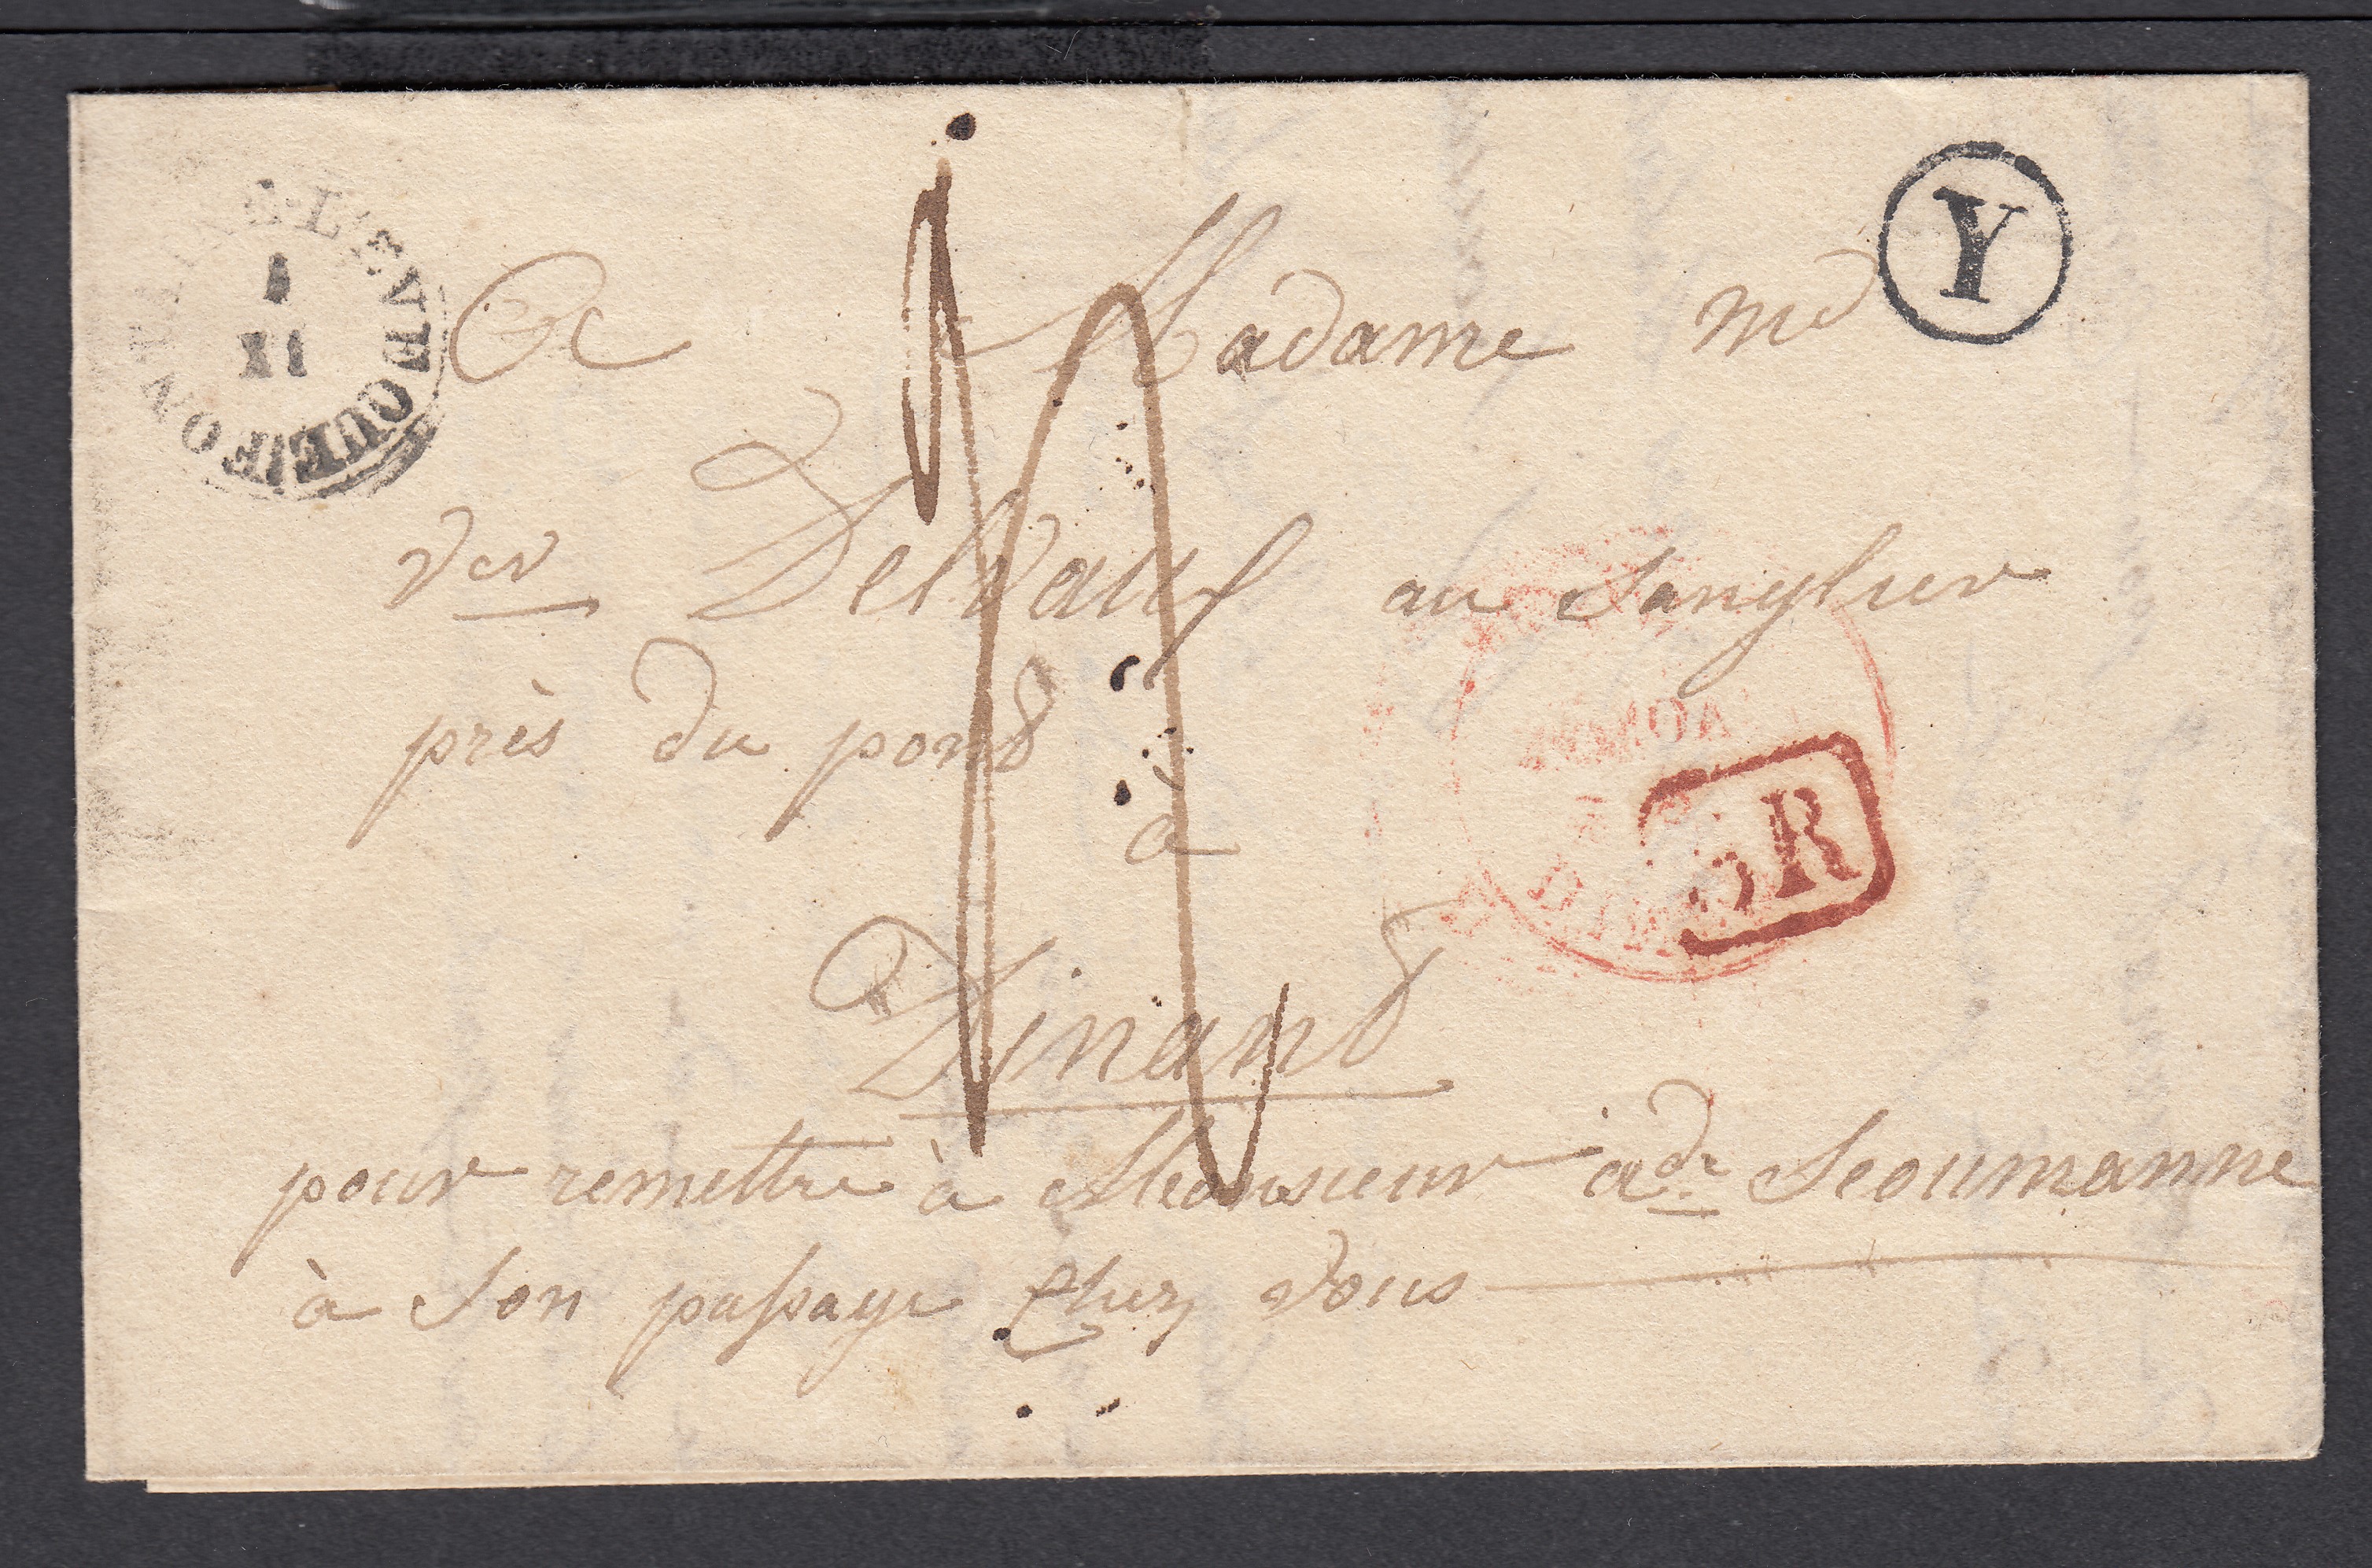 FONTAINE-L'EVEQUE
1
XI
Y
A Madame md
vev Delvaux au Sanglier
près du pond
à
Dinand
pour remettre à Monsieur adr Seoumanne
à son passage chez vous
SR